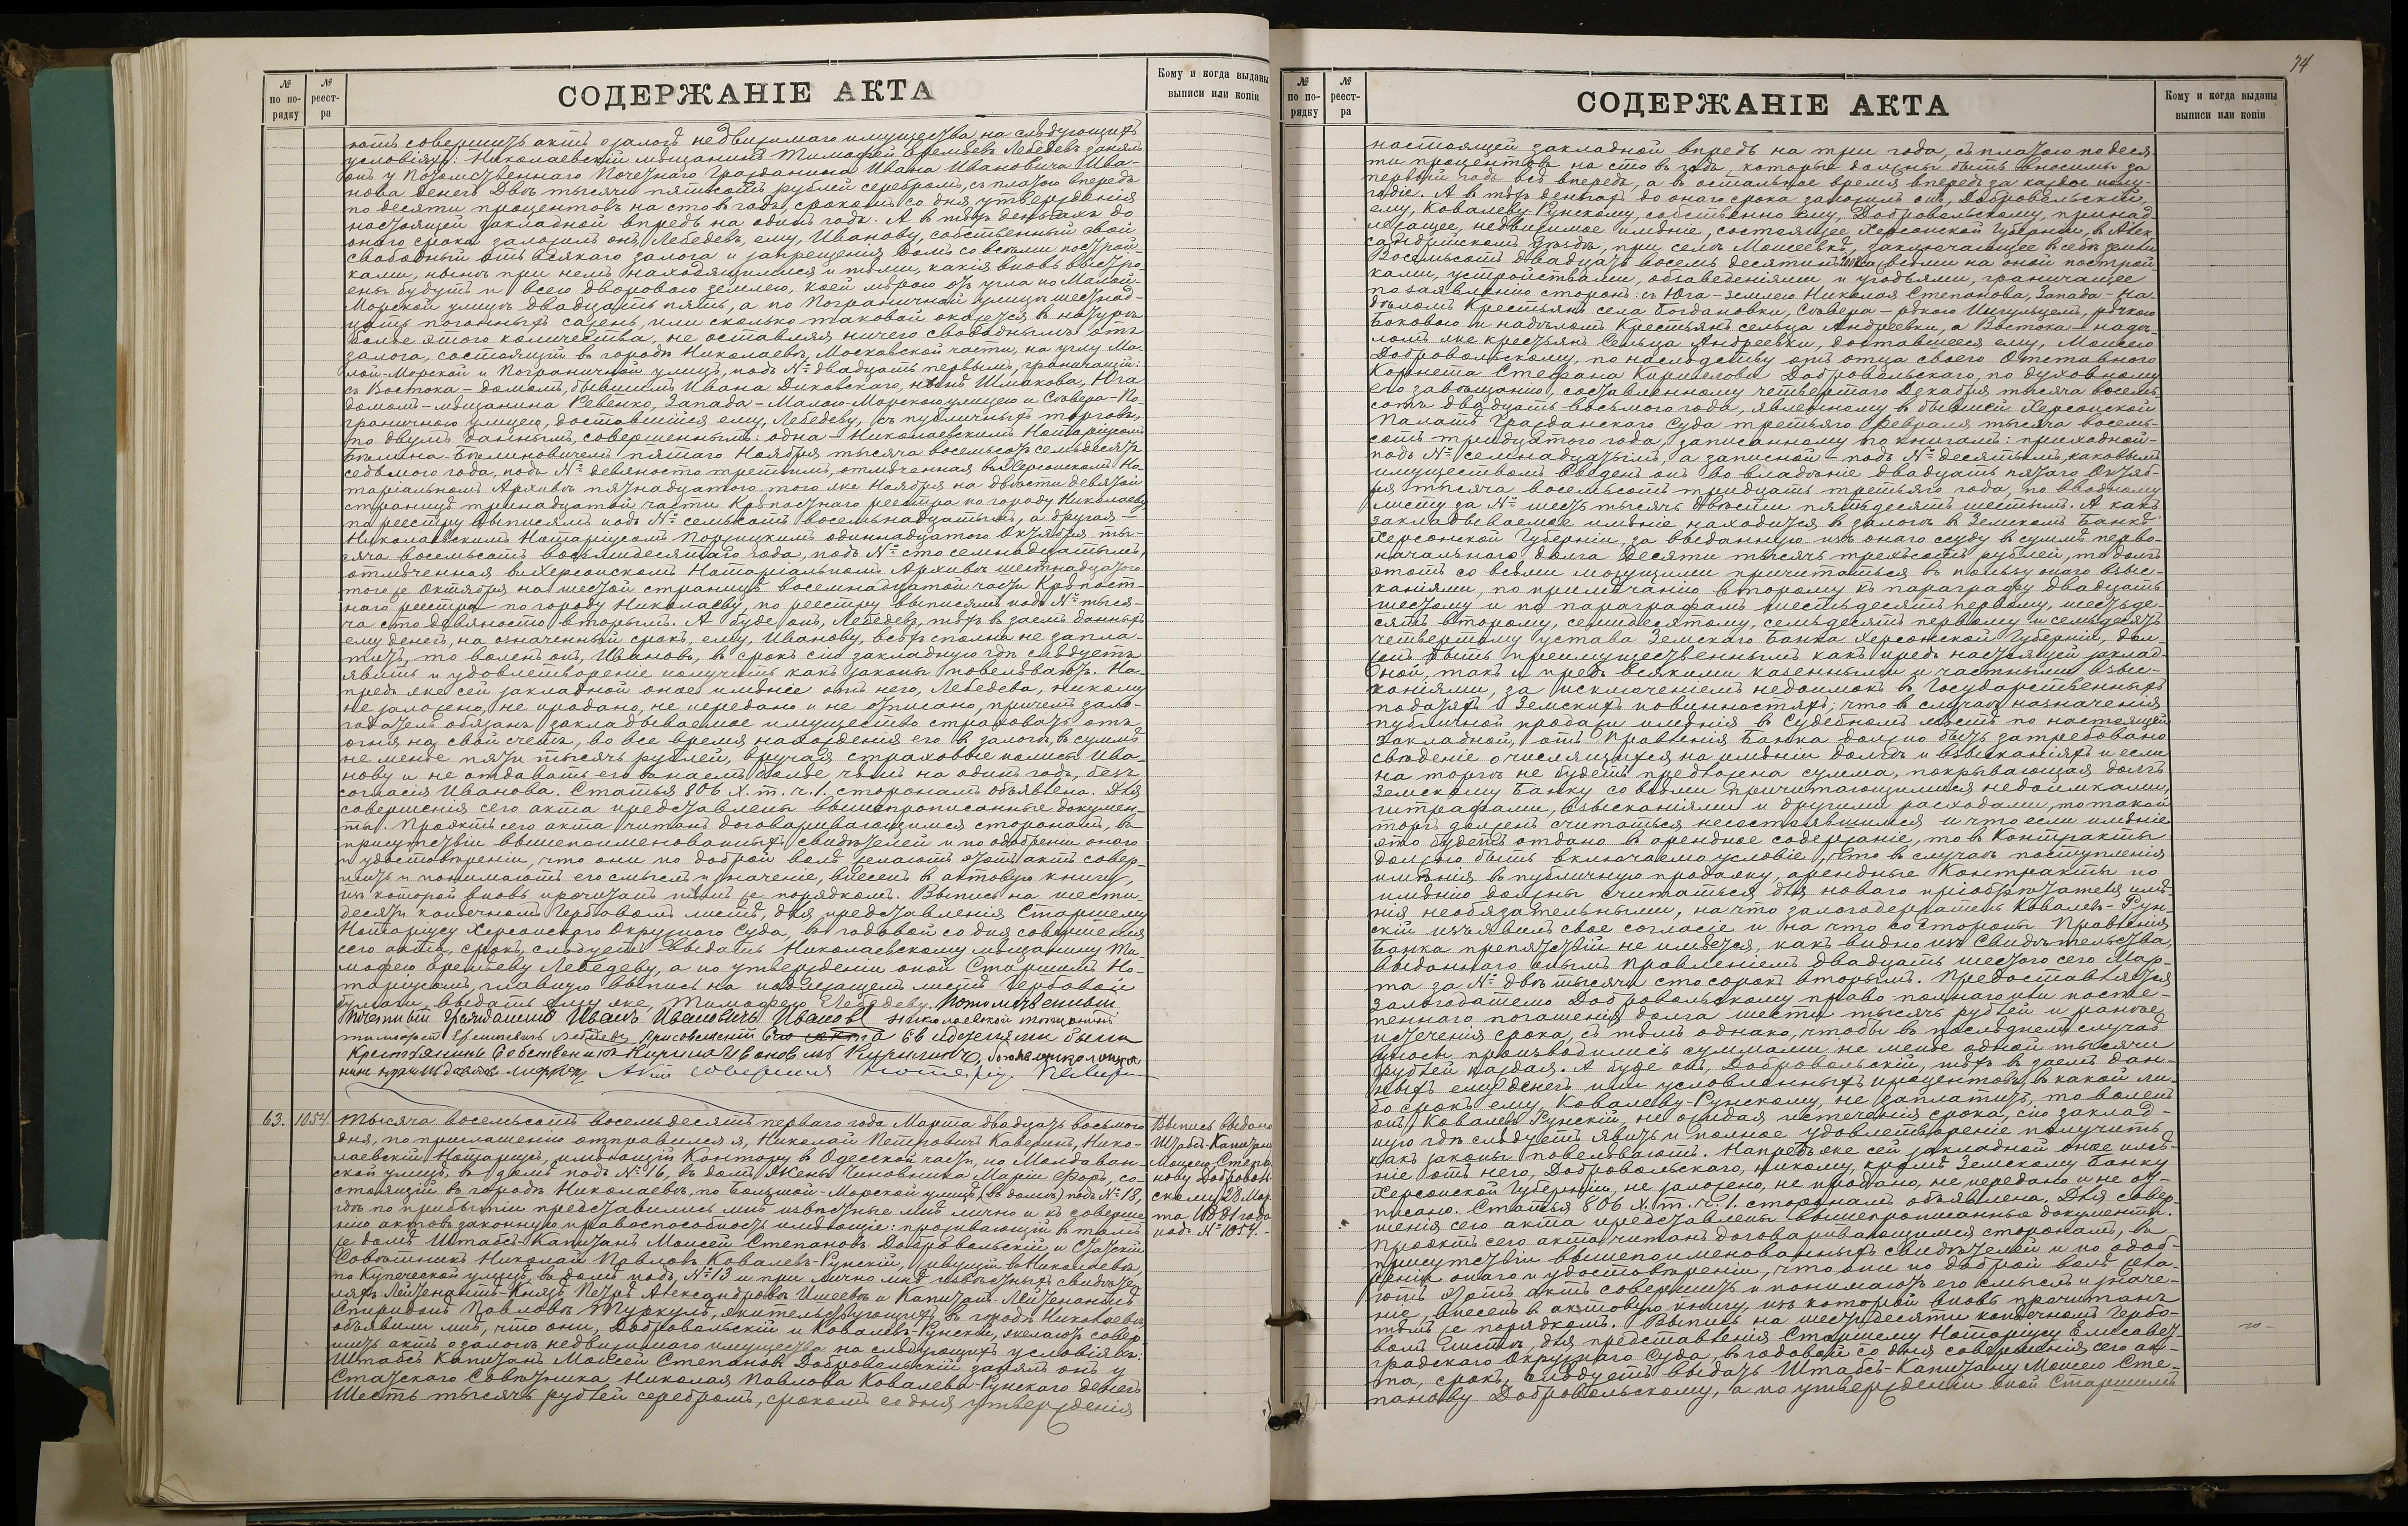 № по порядку
№ реестра
СОДЕРЖАНІЕ АКТА
Кому и когда выданы выписи или копіи
ютъ совершить актъ о залогѣ недвижимаго имущества на слѣдующихъ
условіяхъ: Николаевскій мѣщанинъ Тимофей Еремѣевъ Лебедевъ занялъ
онъ у Потомственнаго Почетнаго Гражданина Ивана Ивановича Ива-
нова денегъ двѣ тысячи пятьсотъ рублей серебромъ, съ платою впередъ
по десяти процентовъ на сто въ годъ, срокомъ со дня утвержденія
настоящей закладной впредь на одинъ годъ. А въ тѣхъ деньгахъ до
онаго срока заложилъ онъ, Лебедевъ, ему, Иванову, собственный свой
свободный отъ всякаго залога и запрещенія домъ со всѣми построй-
ками, нынѣ при немъ находящимися и тѣми, какія вновь выстро-
ены будутъ и всею дворовою землею, коей мѣрою отъ угла по Малой-
Морской улицѣ двадцать пять, а по Пограничной улицѣ шестнад-
цать погонныхъ сажень, или сколько таковой окажется въ натурѣ
болѣе этого количества, не оставляя ничего свободнымъ отъ
залога, состоящій въ городѣ Николаевѣ, Московской части, на углу Ма-
лой-Морской и Пограничной улицъ, подъ № двадцать первымъ, граничащій:
съ Востока - домомъ, бывшимъ Ивана Диковскаго, нынѣ Шмакова, Юга
домомъ - мѣщанина Ревенко, Запада - Малою-Морскою улицею и Сѣвера - По-
граничною улицею, доставшійся ему, Лебедеву, съ публичныхъ торговъ,
по двумъ даннымъ, совершеннымъ: одна - Николаевскимъ Нотаріусомъ
пятаго Ноября тысяча восемьсотъ семьдесятъ
седьмого года, подъ № девяносто третьимъ, отмѣченная въ Херсонскомъ Но-
таріальномъ Архивѣ пятнадцатого того же Ноября на двѣсти девятой
страницѣ тринадцатой части Крѣпостнаго реестра по городу Николаеву,
по реестру выписямъ подъ № семьсотъ восемнадцатымъ, а другая -
Николаевскимъ Нотаріусомъ одиннадцатого Октября ты-
сяча восемьсотъ восьмидесятаго года, подъ № сто семнадцатымъ,
отмѣченная въ Херсонскомъ Нотаріальномъ Архивѣ шестнадцатого
того же Октября на шестой страницѣ восемнадцатой части Крѣпост-
наго реестра по городу Николаеву, по реестру выписямъ подъ № тыся-
ча сто девяносто вторымъ. А буде онъ, Лебедевъ, тѣхъ въ заемъ данныхъ
ему денегъ, на означенный срокъ, ему, Иванову, всѣхъ сполна не запла-
титъ, то воленъ онъ, Ивановъ, въ срокъ сію закладную гдѣ слѣдуетъ
явить и удовлетвореніе получить какъ законы повелѣваютъ. На-
предъ же сей закладной оное имѣніе отъ него, Лебедева, никому
не заложено, не продано, не передано и не описано, причемъ зало-
годатель обязанъ закладываемое имущество страховать отъ
огня на свой счетъ, во все время нахожденія его въ залогѣ, въ суммѣ
не менѣе пяти тысячъ рублей, вручая страховые полисы Ива-
нову и не отдавать его въ наемъ болѣе, чѣмъ на одинъ годъ, безъ
согласія Иванова. Статья 806 X. т. ч. 1. сторонамъ объявлена. Для
совершенія сего акта представлены вышепрописанные докумен-
ты. Проэктъ сего акта читанъ договаривающимся сторонамъ, въ
присутствіи вышепоименованныхъ свидѣтелей и по одобреніи онаго
и удостовѣреніи, что они по доброй волѣ желаютъ этотъ актъ совер-
шить и понимаютъ его смыслъ и значеніе, внесенъ въ актовую книгу,
изъ которой вновь прочитанъ тѣмъ же порядкомъ. Выпись на шести-
десяти копѣечномъ Гербовомъ листѣ, для представленія Старшему
Нотаріусу Херсонскаго Окружнаго Суда, въ годовой со дня совершенія
сего акта срокъ, слѣдуетъ выдать Николаевскому мѣщанину Ти-
мофею Еремѣеву Лебедеву, а по утвержденіи оной Старшимъ Но-
таріусомъ, главную выпись на подлежащемъ листѣ Гербовой
бумаги, выдать ему же, Тимофею Лебедеву. Потомственный
Почетный Гражданинъ Иванъ Ивановичъ Ивановъ
Лебедевъ
Крестьянинъ Собственникъ Кирила Ивановъ
Актъ совершилъ Нотаріусъ
63. 1054. Тысяча восемьсотъ восемьдесятъ перваго года Марта двадцать восьмого
дня, по приглашенію отправился я, Николай Петровичъ Каверинъ, Нико-
лаевскій Нотаріусъ, имѣющій Контору въ Одесской части, по Молдаван-
ской улицѣ, въ домѣ подъ № 16, въ домъ Жены Чиновника Маріи Форъ, со-
стоящій въ городѣ Николаевѣ, по Большой-Морской улицѣ, (въ домѣ) подъ № 18,
гдѣ по прибытіи представились мнѣ извѣстные мнѣ лично и къ соверше-
нію актовъ законную правоспособность имѣющіе: проживающій въ томъ
же домѣ Штабсъ-Капитанъ Моисей Степановъ Добровольскій и Статскій
Совѣтникъ Николай Павловъ Ковалевъ-Рунскій, живущій въ Николаевѣ,
по Купеческой улицѣ, въ домѣ подъ № 13 и при лично мнѣ извѣстныхъ свидѣте-
ляхъ Лейтенантѣ-Князѣ Петрѣ Александровѣ Ишеевѣ и Капитанъ-Лейтенантѣ
Спиридонѣ Павловѣ Туркулѣ, жительствующихъ въ городѣ Николаевѣ,
объявили мнѣ, что они, Добровольскій и Ковалевъ-Рунскій, желаютъ совер-
шить актъ о залогѣ недвижимаго имущества на слѣдующихъ условіяхъ:
Штабсъ-Капитанъ Моисей Степановъ Добровольскій занялъ онъ у
Статскаго Совѣтника Николая Павлова Ковалева-Рунскаго денегъ
Шесть тысячъ рублей серебромъ, срокомъ со дня утвержденія
Выпись выдана
Штабсъ-Капитану
Моисею Степа-
нову Доброволь-
скому 28 Мар-
та 1881 года
подъ № 1054.-
74
№ по порядку
№ реестра
СОДЕРЖАНІЕ АКТА
Кому и когда выданы выписи или копіи
настоящей закладной впредь на три года, съ платою по деся-
ти процентовъ на сто въ годъ, которые должны быть вносимы за
первый годъ всѣ впередъ, а въ остальное время впередъ за каждое полу-
годіе. А въ тѣхъ деньгахъ до онаго срока заложилъ онъ, Добровольскій,
ему, Ковалеву-Рунскому, собственно ему, Добровольскому, принад-
лежащее, недвижимое имѣніе, состоящее Херсонской Губерніи, въ Алек-
сандрійскомъ уѣздѣ, при селѣ Моисеевкѣ, заключающее въ себѣ земли
Восемьсотъ двадцать восемь десятинъ со всѣми на оной построй-
ками, устройствами, обзаведеніями и угодьями, граничащее
по заявленію сторонъ: съ Юга - землею Николая Степанова, Запада - на-
дѣломъ Крестьянъ села Богдановки, Сѣвера - рѣкою Ингульцемъ, рѣчкою
Боковою и надѣломъ Крестьянъ сельца Андреевки, а Востока - надѣ-
ломъ же крестьянъ Сельца Андреевки, доставшееся ему, Моисею
Добровольскому, по наслѣдству отъ отца своего Отставного
Корнета Стефана Кирилова Добровольскаго, по духовному
его завѣщанію, составленному четвертаго Декабря тысяча восемь-
сотъ двадцать восьмого года, явленному въ бывшей Херсонской
Палатѣ Гражданскаго Суда третьяго Февраля тысяча восемь-
сотъ тридцатого года, записанному по книгамъ: приходной -
подъ № семнадцатымъ, а записной - подъ № десятымъ, каковымъ
имуществомъ введенъ онъ во владѣніе двадцать пятаго Октяб-
ря тысяча восемьсотъ тридцать третьяго года, по вводному
листу за № шесть тысячъ двѣсти пятьдесятъ шестымъ. А какъ
закладываемое имѣніе находится въ залогѣ въ Земскомъ Банкѣ
Херсонской Губерніи, за выданную изъ онаго ссуду въ суммѣ перво-
начальнаго долга Десяти тысячъ трехсотъ рублей, то долгъ
этотъ со всѣми могущими причитаться въ пользу онаго взыс-
каніями, по примѣчанію второму къ параграфу двадцать
шестому и по параграфамъ шестьдесятъ первому, шестьде-
сятъ второму, семидесятому, семьдесятъ первому и семьдесятъ
четвертому устава Земскаго Банка Херсонской Губерніи, дол-
женъ быть преимущественнымъ какъ предъ настоящей заклад-
ной, такъ и предъ всякими казенными и частными взыс-
каніями, за исключеніемъ недоимокъ въ Государственныхъ
податяхъ и Земскихъ повинностяхъ; что въ случаѣ назначенія
публичной продажи имѣнія въ Судебномъ мѣстѣ по настоящей
Закладной, отъ Правленія Банка должно быть затребовано
свѣденіе о числящихся на имѣніи долгѣ и взысканіяхъ и если
на торгѣ не будетъ предложена сумма, покрывающая долгъ
Земскому Банку со всѣми причитающимися недоимками,
штрафами, взысканіями и другими расходами, то такой
торгъ долженъ считаться несостоявшимся и что если имѣніе
это будетъ отдано въ арендное содержаніе, то въ Контракты
должно быть включаемо условіе, что въ случаѣ поступленія
имѣнія въ публичную продажу, арендные Контракты по
имѣнію должны считаться для новаго пріобрѣтателя имѣ-
нія необязательными, на что залогодержатель Ковалевъ-Рун-
скій изъявилъ свое согласіе и на что со стороны Правленія
Банка препятствій не имѣется, какъ видно изъ Свидѣтельства,
выданнаго онымъ Правленіемъ двадцать шестого сего Мар-
та за № двѣ тысячи сто сорокъ вторымъ. Предоставляется
Залогодателю Добровольскому право полнаго или посте-
пеннаго погашенія долга шести тысячъ рублей и ранѣе
истеченія срока, съ тѣмъ однако, чтобы въ послѣднемъ случаѣ
взносы производились суммами не менѣе одной тысячи
рублей каждая. А буде онъ, Добровольскій, тѣхъ въ заемъ дан-
ныхъ ему денегъ или условленныхъ процентовъ, въ какой ли-
бо срокъ ему, Ковалеву-Рунскому, не заплатитъ, то воленъ
онъ, Ковалевъ-Рунскій, не ожидая истеченія срока, сію заклад-
ную гдѣ слѣдуетъ явить и полное удовлетвореніе получить
какъ законы повелѣваютъ. Напредъ же сей закладной оное имѣ-
ніе отъ него, Добровольскаго, никому, кромѣ Земскому Банку
Херсонской Губерніи, не заложено, не продано, не передано и не о-
писано. Статья 806 X. т. ч. 1. сторонамъ объявлена. Для совер-
шенія сего акта представлены вышепрописанные документы.
Проэктъ сего акта читанъ договаривающимся сторонамъ, въ
присутствіи вышепоименованныхъ свидѣтелей и по одоб-
реніи онаго и удостовѣреніи, что они по доброй волѣ жела-
ютъ этотъ актъ совершить и понимаютъ его смыслъ и значе-
ніе, внесенъ въ актовую книгу, изъ которой вновь прочитанъ
тѣмъ же порядкомъ. Выпись на шестидесяти копѣечномъ Гербо-
вомъ листѣ, для представленія Старшему Нотаріусу Елисавет-
градскаго Окружнаго Суда, въ годовой со дня совершенія сего ак-
та, срокъ, слѣдуетъ выдать Штабсъ-Капитану Моисею Сте-
панову Добровольскому, а по утвержденіи оной Старшимъ